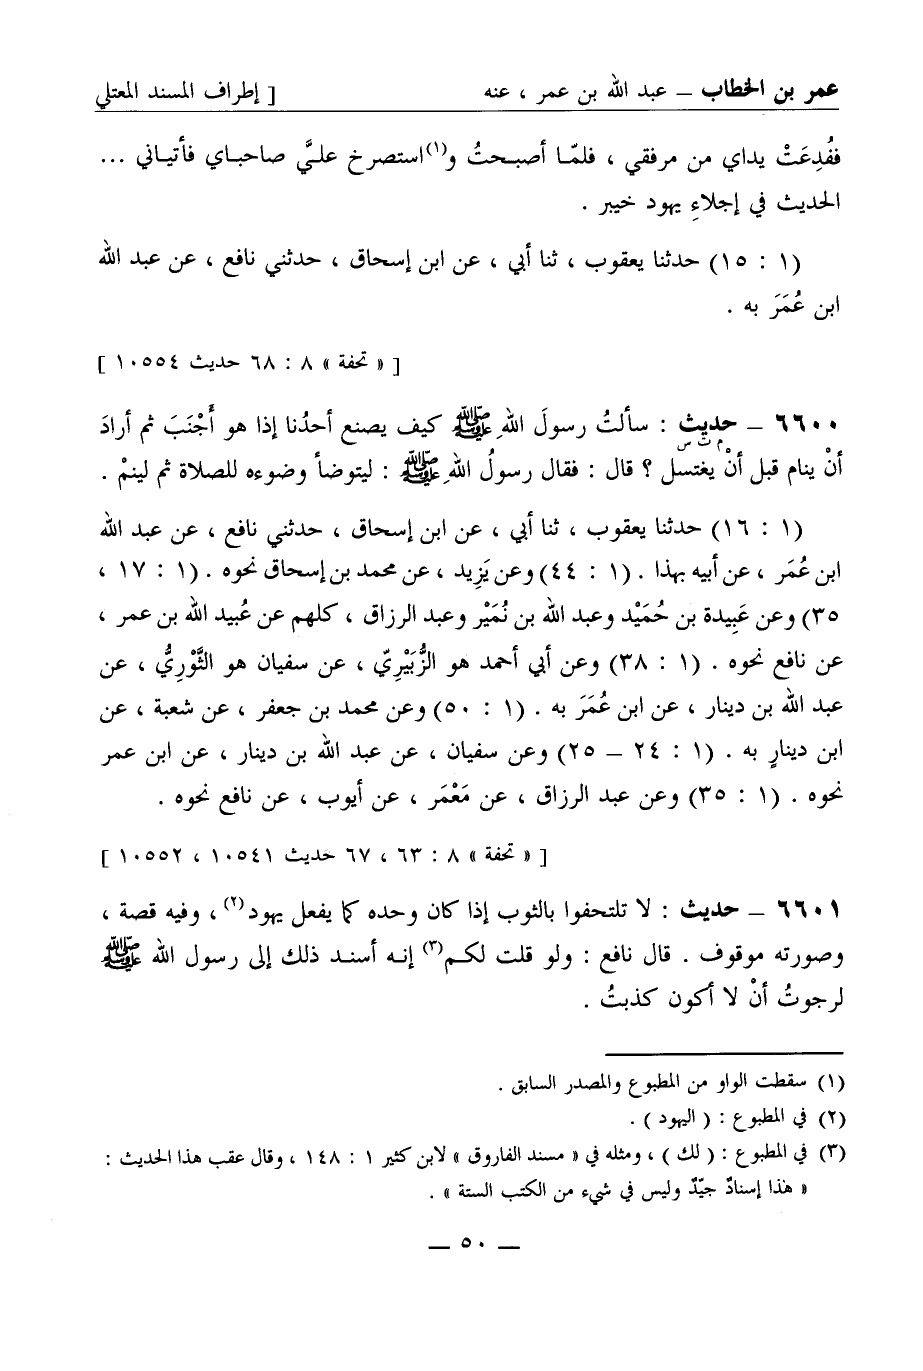 عمر بن الخطاب – عبد الله بن عمر ، عنه [ إطراف المسند المعتلي
ففُدِعَتْ يداي من مرفقي ، فلمّا أصبحتُ و(١)استصرخ عليَّ صاحباي فأتياني ...
الحديث في إجلاءِ يهود خيبر .
(١ : ١٥) حدثنا يعقوب ، ثنا أبي ، عن ابن إسحاق ، حدثني نافع ، عن عبد الله
ابن عُمَرَ به .
[ « تحفة » ٨ : ٦٨ حديث ١٠٥٥٤ ]
٦٦٠٠ – حديث : سألتُ رسولَ اللهِ ﷺ كيف يصنع أحدُنا إذا هو أَجْنَبَ ثم أرادَ
م ت س
أنْ ينام قبل أنْ يغتسل ؟ قال : فقال رسولُ اللهِ ﷺ : ليتوضأ وضوءه للصلاة ثم لينمْ .
(١ : ١٦) حدثنا يعقوب ، ثنا أبي ، عن ابن إسحاق ، حدثني نافع ، عن عبد الله
ابن عُمَر ، عن أبيه بهذا . (١ : ٤٤) وعن يَزِيد ، عن محمد بن إسحاق نحوه . (١ : ١٧ ،
٣٥) وعن عَبِيدة بن حُمَيْد وعبد الله بن نُمَيْر وعبد الرزاق ، كلهم عن عُبيد الله بن عمر ،
عن نافع نحوه . (١ : ٣٨) وعن أبي أحمد هو الزُّبَيْرِيّ ، عن سفيان هو الثَّوْرِيُّ ، عن
عبد الله بن دينار ، عن ابن عُمَرَ به . (١ : ٥٠) وعن محمد بن جعفر ، عن شعبة ، عن
ابن دينارٍ به . (١ : ٢٤ – ٢٥) وعن سفيان ، عن عبد الله بن دينار ، عن ابن عمر
نحوه . (١ : ٣٥) وعن عبد الرزاق ، عن مَعْمَر ، عن أيوب ، عن نافع نحوه .
[ « تحفة » ٨ : ٦٣ ، ٦٧ حديث ١٠٥٤١ ، ١٠٥٥٢ ]
٦٦٠١ – حديث : لا تلتحفوا بالثوب إذا كان وحده كما يفعل يهود(٢) ، وفيه قصة ،
وصورته موقوف . قال نافع : ولو قلت لكم(٣) إنه أسند ذلك إلى رسول الله ﷺ
لرجوتُ أنْ لا أكون كذبتُ .
(١) سقطت الواو من المطبوع والمصدر السابق .
(٢) في المطبوع : ( اليهود ) .
(٣) في المطبوع : ( لك ) ، ومثله في « مسند الفاروق » لابن كثير ١ : ١٤٨ ، وقال عقب هذا الحديث :
« هذا إسنادٌ جيّدٌ وليس في شيء من الكتب الستة » .
– ٥٠ –